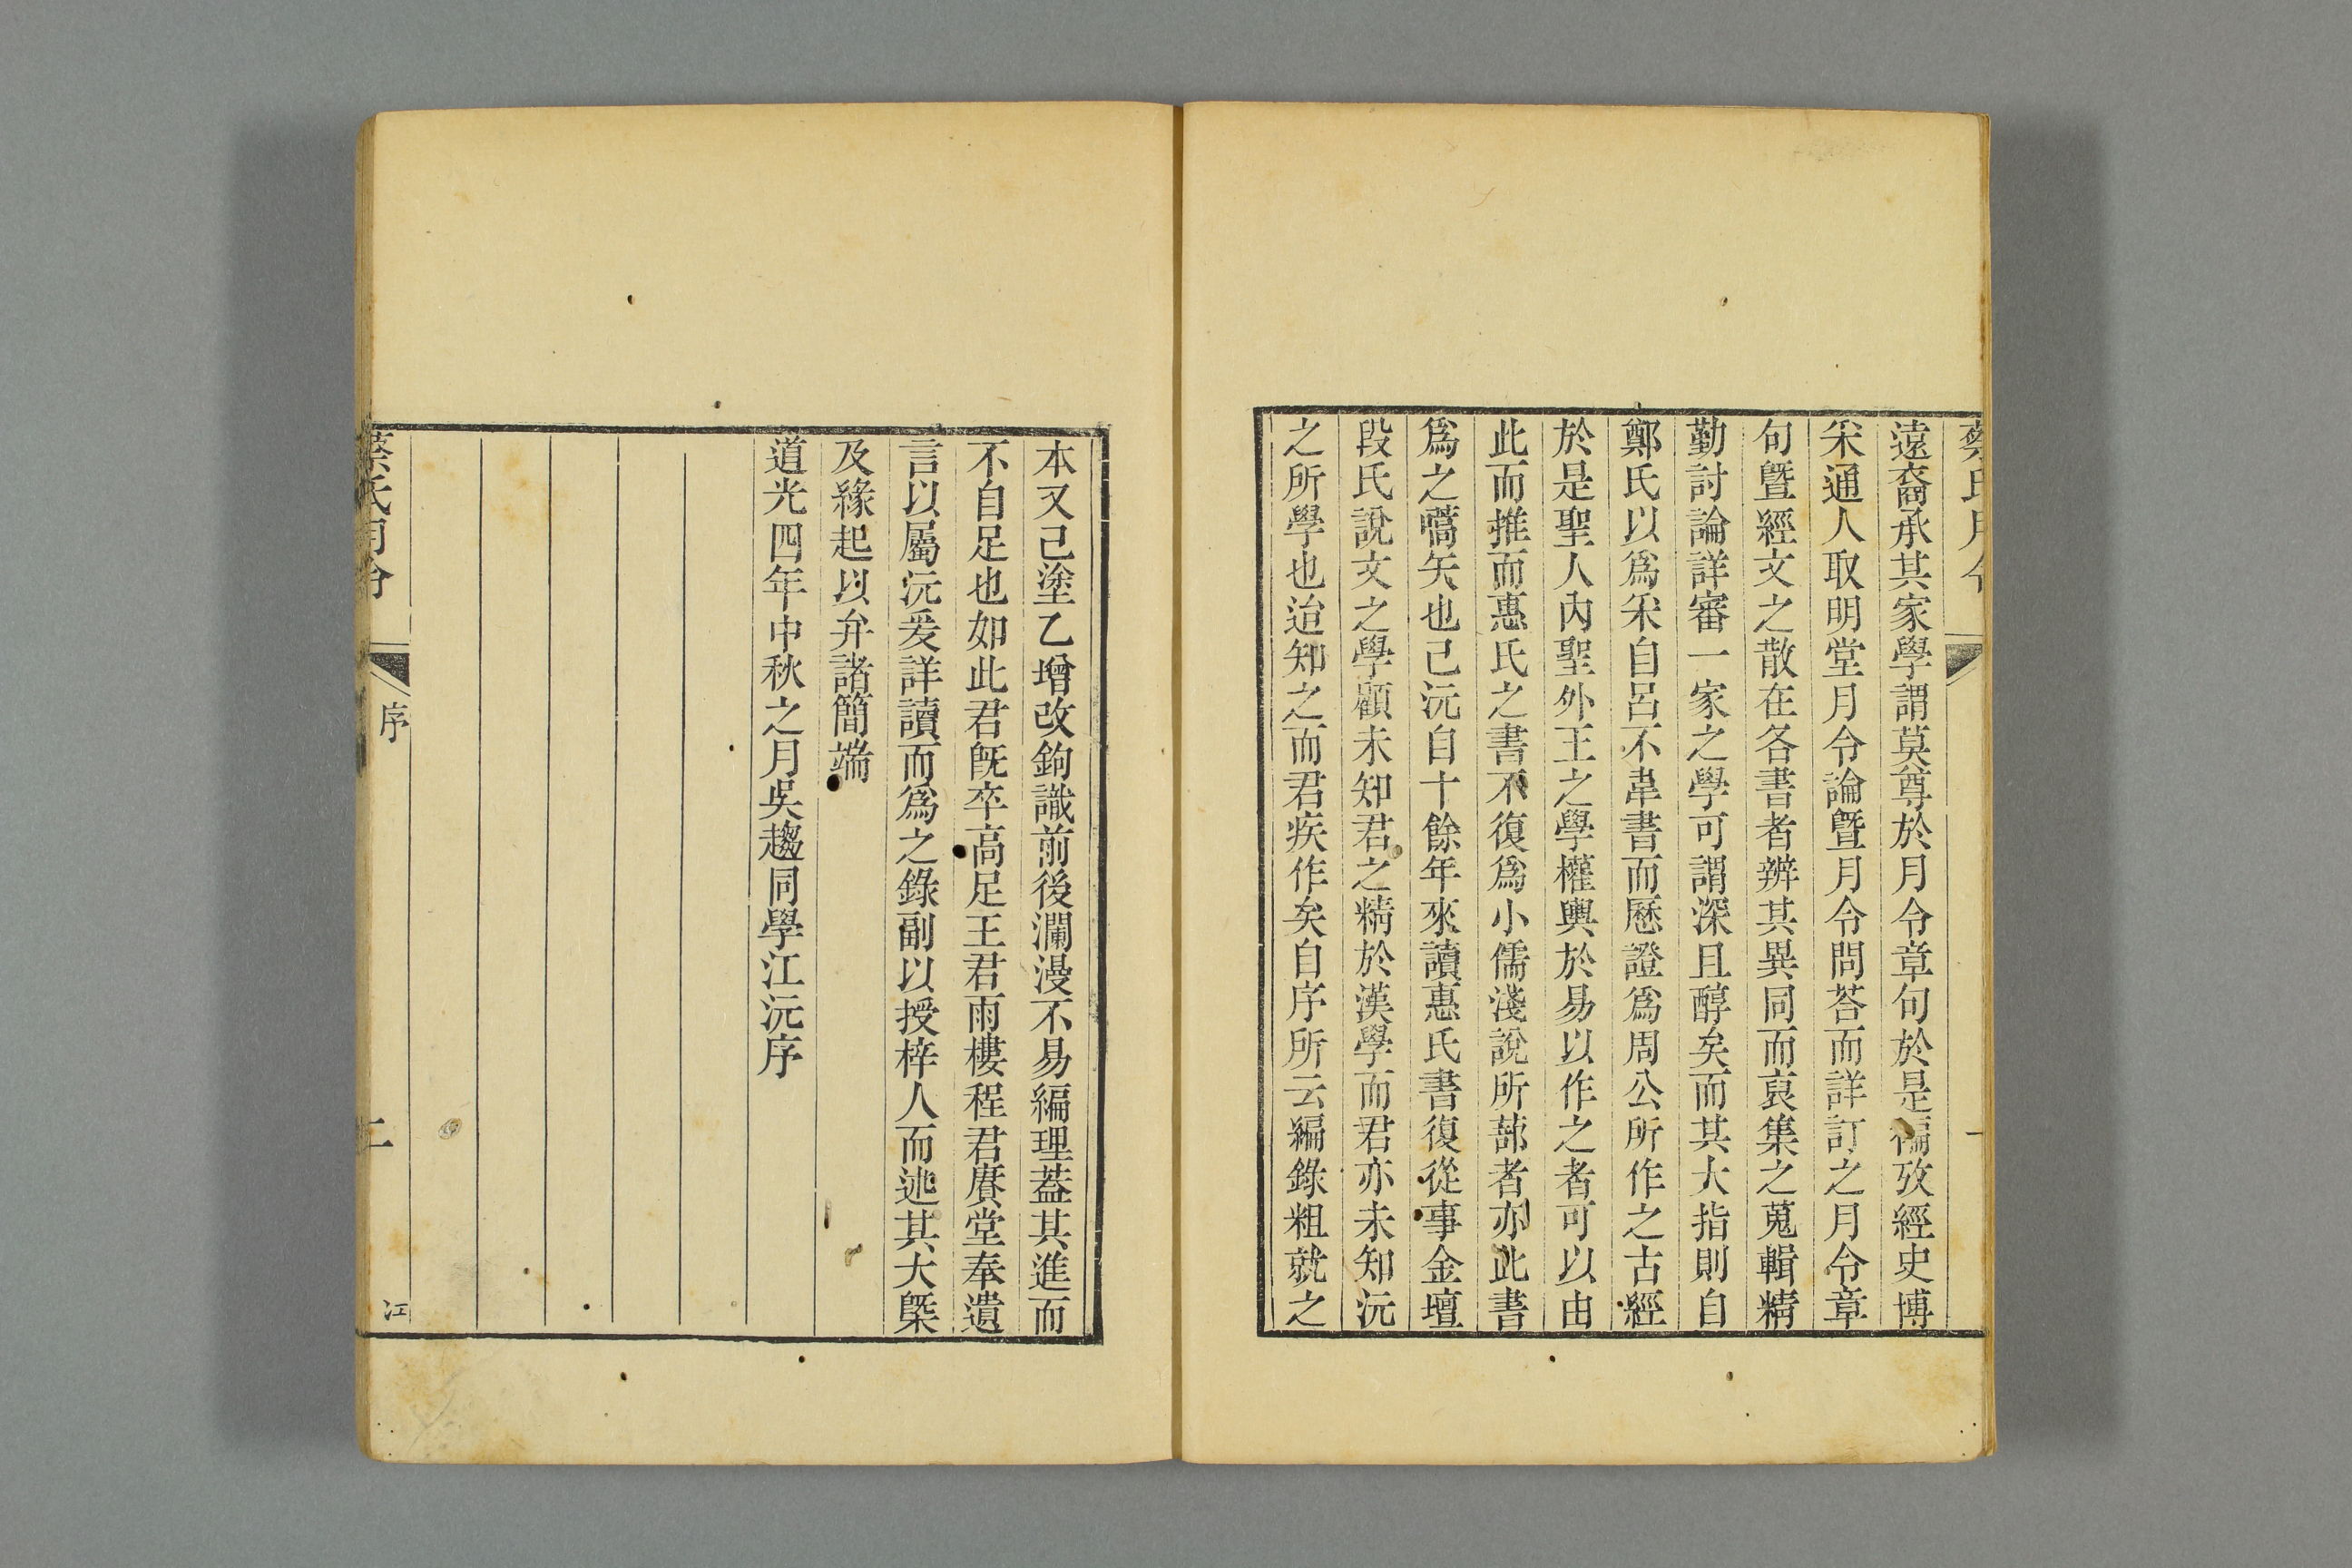 蔡氏月令
一
遠裔承其家學謂莫尊於月令章句於是徧攷經史博
釆通人取明堂月令論曁月令問荅而詳訂之月令章
句曁經文之散在各書者辨其異同而裒集之蒐輯精
勤討論詳審一家之學可謂深且醇矣而其大指則自
鄭氏以爲釆自呂不韋書而歷證爲周公所作之古經
於是聖人內聖外王之學權輿於易以作之者可以由
此而推而惠氏之書不復爲小儒淺說所蔀者亦此書
爲之蒿矢也己沅自十餘年來讀惠氏書復從事金壇
段氏說文之學顧未知君之精於漢學而君亦未知沅
之所學也迨知之而君疾作矣自序所云編錄粗就之
本又己塗乙增改鉤識前後瀾漫不易編理蓋其進而
不自足也如此君旣卒高足王君雨樓程君賡堂奉遺
言以屬沅爰詳讀而爲之錄副以授梓人而述其大槩
及緣起以弁諸簡端
道光四年中秋之月吳趨同學江沅序
蔡氏月令
序
二
江